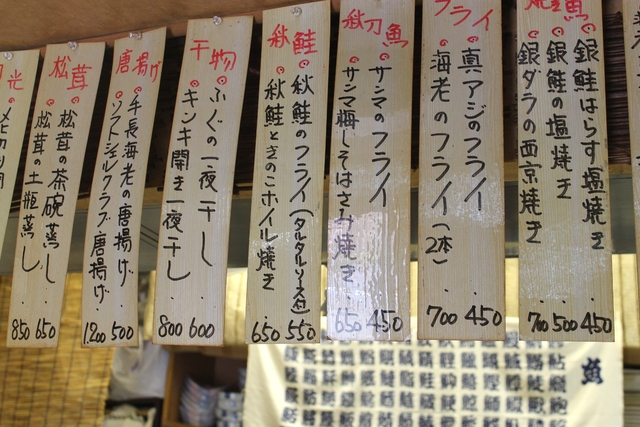 焼魚
銀鮭はらす塩焼き 450
銀鮭の塩焼き 500
銀ダラの西京焼き 700
フライ
真アジのフライ 450
海老のフライ(2本) 700
秋刀魚
サンマのフライ 450
サンマ梅しそはさみ焼き 650
秋鮭
秋鮭のフライ(タルタルソース付) 550
秋鮭ときのこホイル焼き 650
干物
ふぐの一夜干し 600
キンキ開き一夜干し 800
唐揚げ
手長海老の唐揚げ 500
ソフトシェルクラブ唐揚げ 1200
松茸
松茸の茶碗蒸し 650
松茸の土瓶蒸し 850